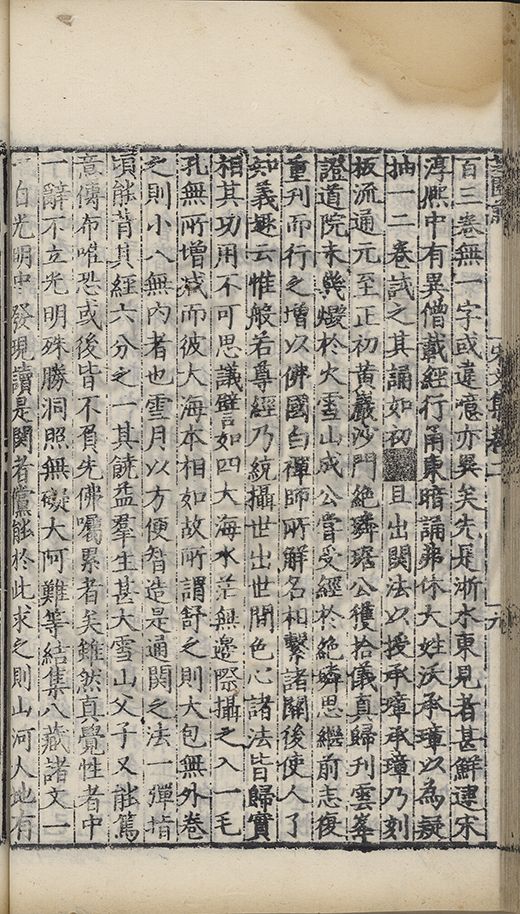 百三卷無一字或違憶亦異矣先是浙水東見者甚鮮逮宋
淳熙中有異僧載經行甬東暗誦弗休大姓沃承璋以為疑
抽一二卷試之其誦如初且出関法以授承璋承璋乃刻
板流通元至正初黃巖沙門絕璘琚公獲拾儀真歸刊雲峯
證道院未幾燬於火雪山成公嘗受經於絕璘思繼前志復
重刊而行之增以佛國白禪師所解名相繫諸関後使人了
知義趣云惟般若尊經乃統攝世出世間色心諸法皆歸實
相其功用不可思議譬如四大海水茫無邊際攝之入一毛
孔無所增減而彼大海本相如故所謂舒之則大包無外卷
之則小入無内者也雪月以方便智造是通関之法一彈指
頃能背其經六分之一其饒益羣生甚大雪山父子又能篤
意傳布唯恐或後皆不負先佛囑累者矣雖然真覺性者中
一辭不立光明殊勝洞照無礙大阿難等結集八藏諸文一
一自光明中發現讀是関者黨能於此求之則山河人地有